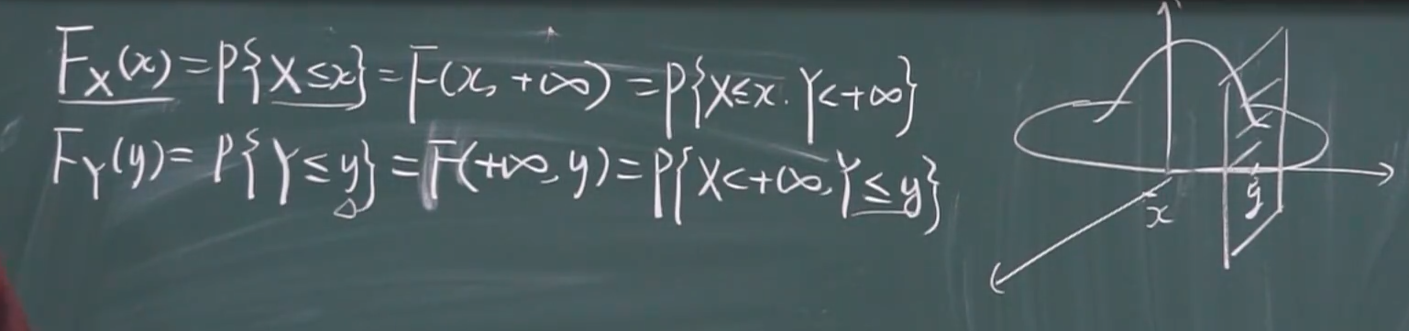 F_X(x)=P{X≤x}=F(x,+∞)=P{X≤x.Y<+∞}
F_Y(y)=P{Y≤y}=F(+∞,y)=P{X<+∞,Y≤y}
x
y